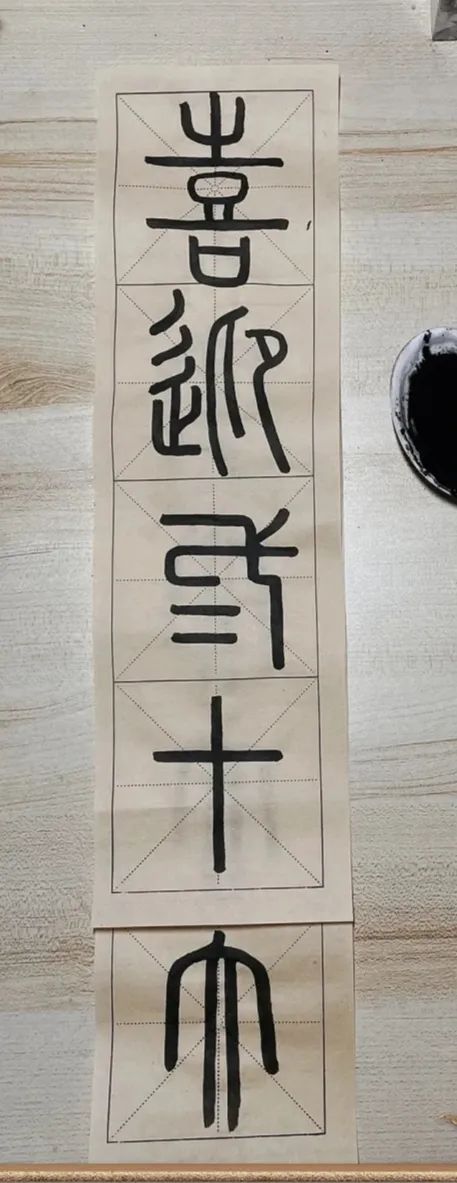 喜迎弍十大